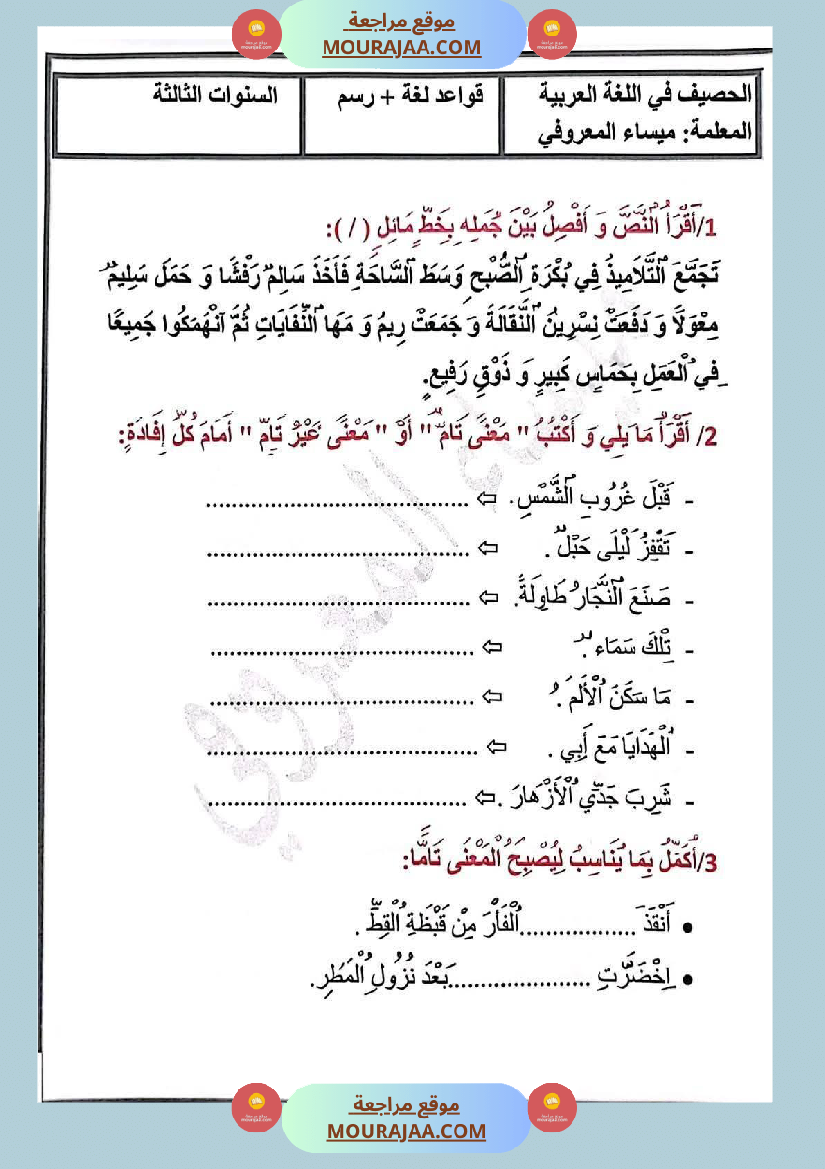 موقع مراجعة
MOURAJAA.COM
الحصيف في اللغة العربية
المعلمة: ميساء المعروفي
قواعد لغة + رسم
السنوات الثالثة
1/أَقْرَأُ ٱلنَّصَّ وَ أَفْصِلُ بَيْنَ جُمَلِهِ بِخَطٍّ مَائِلٍ ( / ):
تَجَمَّعَ ٱلتَّلَامِيذُ فِي بُكْرَةِ ٱلصُّبْحِ وَسَطَ ٱلسَّاحَةِ فَأَخَذَ سَالِمٌ رَفْشًا وَ حَمَلَ سَلِيمٌ
مِعْوَلًا وَ دَفَعَتْ نِسْرِينُ ٱلنَّقَالَةَ وَ جَمَعَتْ رِيمُ وَ مَهَا ٱلنُّفَايَاتِ ثُمَّ ٱنْهَمَكُوا جَمِيعًا
فِي ٱلْعَمَلِ بِحَمَاسٍ كَبِيرٍ وَ ذَوْقٍ رَفِيعٍ.
2/ أَقْرَأُ مَا يَلِي وَ أَكْتُبُ " مَعْنًى تَامٌّ " أَوْ " مَعْنًى غَيْرُ تَامٍّ " أَمَامَ كُلِّ إِفَادَةٍ:
- قَبْلَ غُرُوبِ ٱلشَّمْسِ. ⇦ ........................................
- تَقْفِزُ لَيْلَى حَبْلٌ . ⇦ ........................................
- صَنَعَ ٱلنَّجَارُ طَاوِلَةً. ⇦ ........................................
- تِلْكَ سَمَاءٌ . ⇦ ........................................
- مَا سَكَنَ ٱلْأَلَمُ . ⇦ ........................................
- ٱلْهَدَايَا مَعَ أَبِي . ⇦ ........................................
- شَرِبَ جَدِّي ٱلْأَزْهَارَ . ⇦ ........................................
3/أُكَمِّلُ بِمَا يُنَاسِبُ لِيُصْبِحَ ٱلْمَعْنَى تَامًّا:
• أَنْقَذَ ..................................ٱلْفَأْرَ مِنْ قَبْظَةِ ٱلْقِطِّ .
• اِخْضَرَّتِ ......................................بَعْدَ نُزُولِ ٱلْمَطَرِ.
المعلمة ميساء المعروفي
موقع مراجعة
MOURAJAA.COM